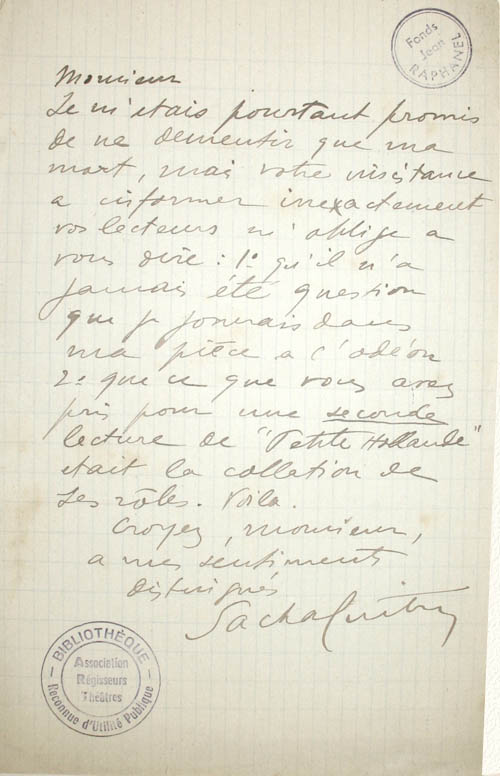 Fonds
Jean
RAPHANEL
Monsieur
Je m'etais pourtant promis
de ne dementir que ma
mort, mais votre insistance
a informer inexactement
vos lecteurs m'oblige a
vous dire : 1º qu'il n'a
jamais été question
que je jouerais dans
ma pièce a l'odéon
2º que ce que vous avez
pris pour une seconde
lecture de "Petite Hollande"
etait la collation de
ses rôles. Voila.
Croyez, monsieur,
a mes sentiments
distingués
Sacha Guitry
BIBLIOTHÈQUE
Association
Régisseurs
Théâtres
Reconnue d'Utilité Publique